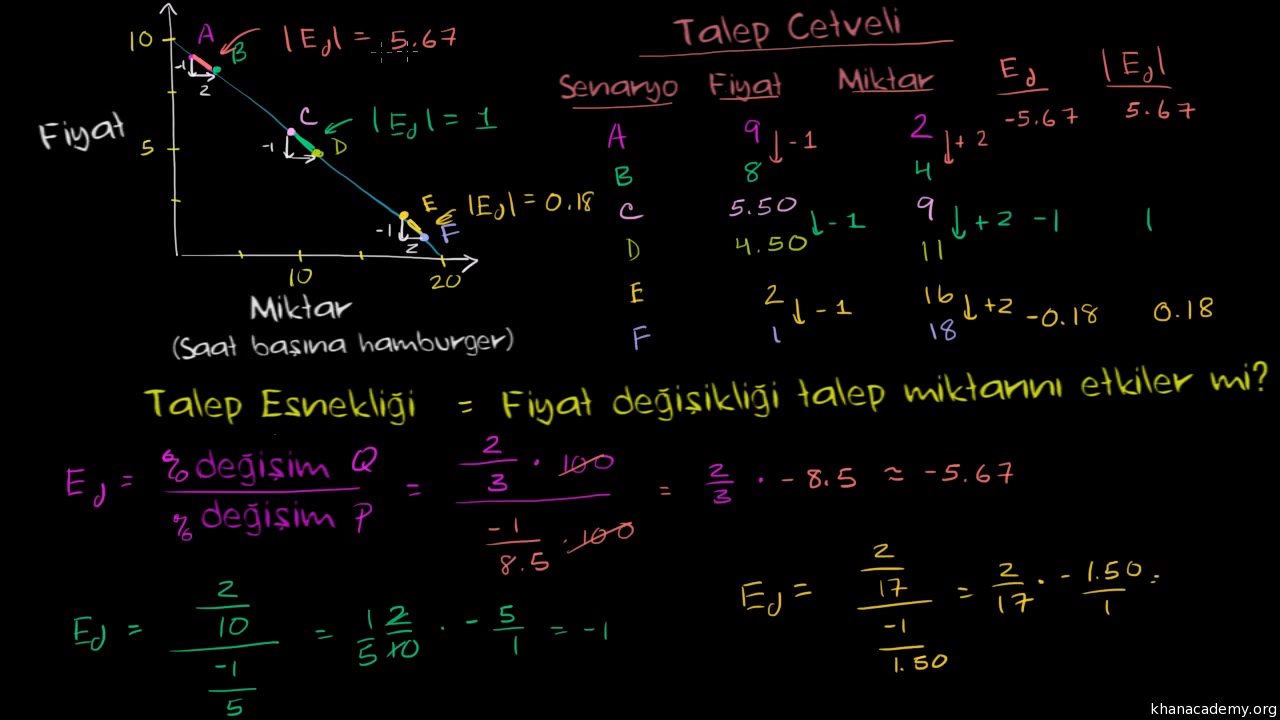 Talep Cetveli
10 A B |E_d| = 5.67
-1 2
Fiyat
5
C D |E_d| = 1
-1
E F |E_d| = 0.18
-1 2
10 20
Miktar
(Saat başına hamburger)
Senaryo Fiyat Miktar E_d |E_d|
A 9 ↓ -1 2 ↓ + 2 -5.67 5.67
B 8 4
C 5.50 ↓ -1 9 ↓ +2 -1 1
D 4.50 11
E 2 ↓ -1 16 ↓ +2 -0.18 0.18
F 1 18
Talep Esnekliği = Fiyat değişikliği talep miktarını etkiler mi?
E_d = % değişim Q / % değişim P = (2/3 · 100) / (-1/8.5 · 100) = 2/3 · -8.5 ≈ -5.67
E_d = (2/10) / (-1/5) = 1 2 / 5 10 · - 5/1 = -1
E_d = (2/17) / (-1/1.50) = 2/17 · - 1.50/1 =
khanacademy.org